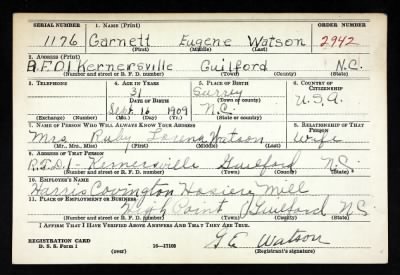 SERIAL NUMBER 1. NAME (Print) ORDER NUMBER
1176 Garnett Eugene Watson 2942
(First) (Middle) (Last)
2. ADDRESS (Print)
R.F.D1 Kernersville Guilford N.C.
(Number and street or R. F. D. number) (Town) (County) (State)
3. TELEPHONE 4. AGE IN YEARS 5. PLACE OF BIRTH 6. COUNTRY OF CITIZENSHIP
31 Surrey
DATE OF BIRTH (Town or county) U.S.A.
Sept 14 1909 N.C.
(Exchange) (Number) (Mo.) (Day) (Yr.) (State or country)
7. NAME OF PERSON WHO WILL ALWAYS KNOW YOUR ADDRESS 8. RELATIONSHIP OF THAT PERSON
Mrs. Ruby Watson Wife
(Mr., Mrs., Miss) (First) (Middle) (Last)
9. ADDRESS OF THAT PERSON
R.F.D1- Kernersville Guilford N.C.
(Number and street or R. F. D. number) (Town) (County) (State)
10. EMPLOYER'S NAME
Harris Covington Hosiery Mill
11. PLACE OF EMPLOYMENT OR BUSINESS
High Point Guilford N.C.
(Number and street or R. F. D. number) (Town) (County) (State)
I AFFIRM THAT I HAVE VERIFIED ABOVE ANSWERS AND THAT THEY ARE TRUE.
REGISTRATION CARD
D. S. S. Form 1 (over) 16—17105 G E Watson
(Registrant's signature)